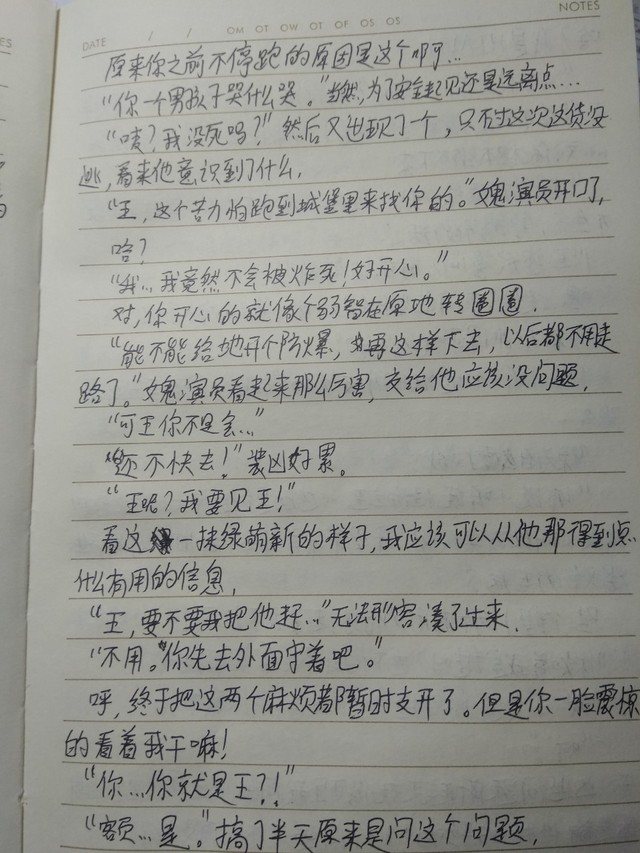 ES
DATE / / OM OT OW OT OF OS OS NOTES
原来你之前不停跑的原因是这个啊...
“你一个男孩子哭什么哭。”当然,为了安全起见还是远离点...
“唛?我没死吗?”然后又出现了一个,只不过这次这货没
逃,看来他意识到了什么,
“王,这个苦力怕跑到城堡里来找你的。”媿演员开口了,
哈?
“我...我竟然不会被炸死!好开心。”
对,你开心的就像个弱智在原地转圈圈.
“能不能给她开个防爆,再这样下去,以后都不用走
路了。”媿演员看起来那么厉害,交给他应该没问题,
“可王你不是会...”
“还不快去!”装凶好累。
“王呢?我要见王!”
看这一抹绿萌新的样子,我应该可以从他那得到点
什么有用的信息,
“王,要不要我把他赶...”无法形容凑了过来.
“不用。你先去外面守着吧。”
呼,终于把这两个麻烦都暂时支开了。但是你一脸震惊
的看着我干嘛!
“你...你就是王?!”
“额...是。”搞了半天原来是问这个问题,